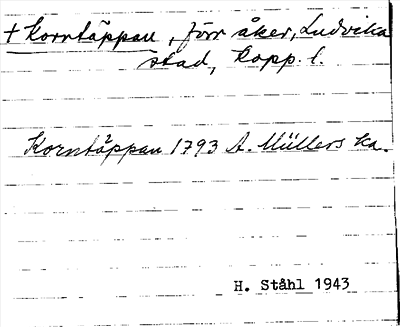 † Korntäppan, förr åker, Ludvika
stad, Kopp. l.
Korntäppan 1793 A. Müllers ka.
H. Ståhl 1943